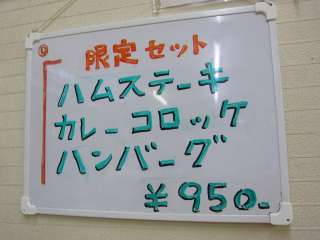 限定セット
ハムステーキ
カレーコロッケ
ハンバーグ
¥950-